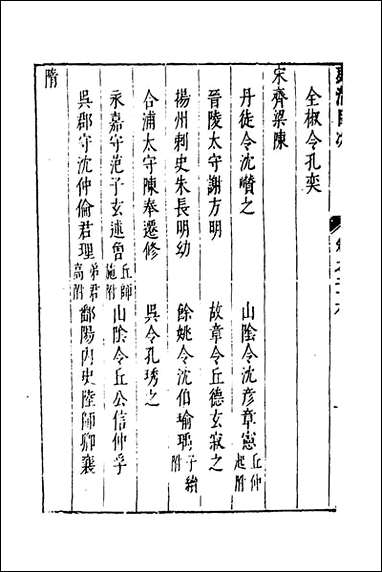 全椒令孔奕
宋齊梁陳
丹徒令沈囋之　山陰令沈彥章憲丘仲起附
晉陵太守謝方明　故章令丘德玄寂之
揚州刺史朱長明幼　餘姚令沈伯瑜瑀子續附
合浦太守陳奉遷修　吳令孔琇之
永嘉守范子玄述曾丘師施附山陰令丘公信仲孚
吳郡守沈仲倫君理弟君高附鄱陽內史陸師卿襄
隋